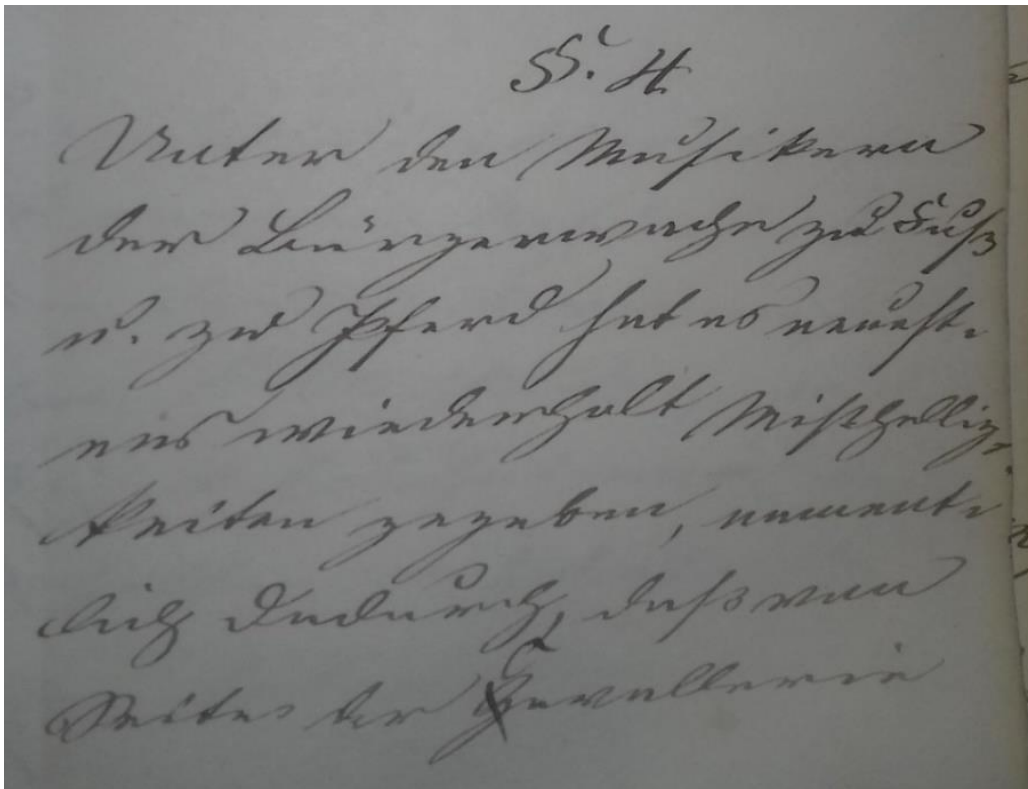 §. 4.
Unter den Musikern
der Bürgerwache zu Fuß
u. zu Pferd hat es neuest-
ens wiederholt Mißhellig-
keiten gegeben, nament-
lich dadurch, daß von
Seiten der Cavallerie